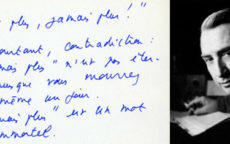 plus, jamais plus ! "
pourtant, contradiction :
mais plus " n'est pas éter-
uisque vous mourrez
même un jour.
mais plus " est un mot
immortel.